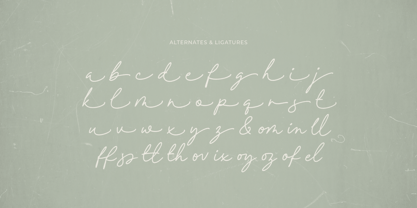 ALTERNATES & LIGATURES
a b c d e f g h i j
k l m n o p q r s t
u v w x y z & om in ll
ff sp tt th ov ix oy oz of el